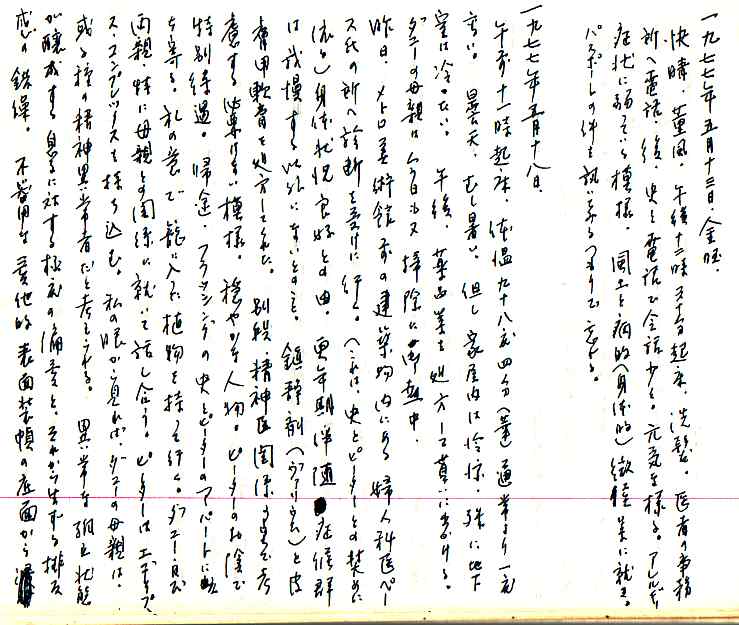 一九七七年五月十三日、金曜、
快晴、薫風、午後十二時 起床、洗髪。医者の事務
所へ電話 後、史と電話で会話少々。元気な様子。アレルギー
症状に弱っている模様。風土と病的(身体的)徴候 等に就き。
パスポートの件も
一九七七年五月十八日、
午前十一時起床、体温九十八度四分(華)通常より一度
高い。曇天、むし暑い。但し家屋内は冷涼、殊に地下
室は冷たい。午後、薬を処方して貰いに出かける。
ダニーの母親は今日も又掃除に 中。
昨日、メトロ美術館 前の建築物内にある婦人科医ペー
ス氏の所へ診断を受けに行く。(これは、史とピーターとの奨めに
依る)身体状況良好との由。更年期 症候群
は我慢する以外にないとのこと。鎮静剤(ヴァリウム)と皮
膚用軟膏を処方してくれた。別段、精神医関係 考
慮する必要はない模様。穏やかな人物。ピーターのお陰で
特別待遇。帰途、フラッシングの史とピーターのアパートに立
ち寄る。私の養で籠に入れた植物を持って行く。ダニー、及び
両親、特に母親との関係に就いて話し合う。ピーターはエディプ
ス・コンプレックスを持ち込む。私の眼から見れば、ダニーの母親は、
或る種の精神異常者だと考えられる。異常な孤立状態
が醸成する息子に対する極度の偏愛と、それから生ずる排他
感の 。不 な 他的表面装 の底面から